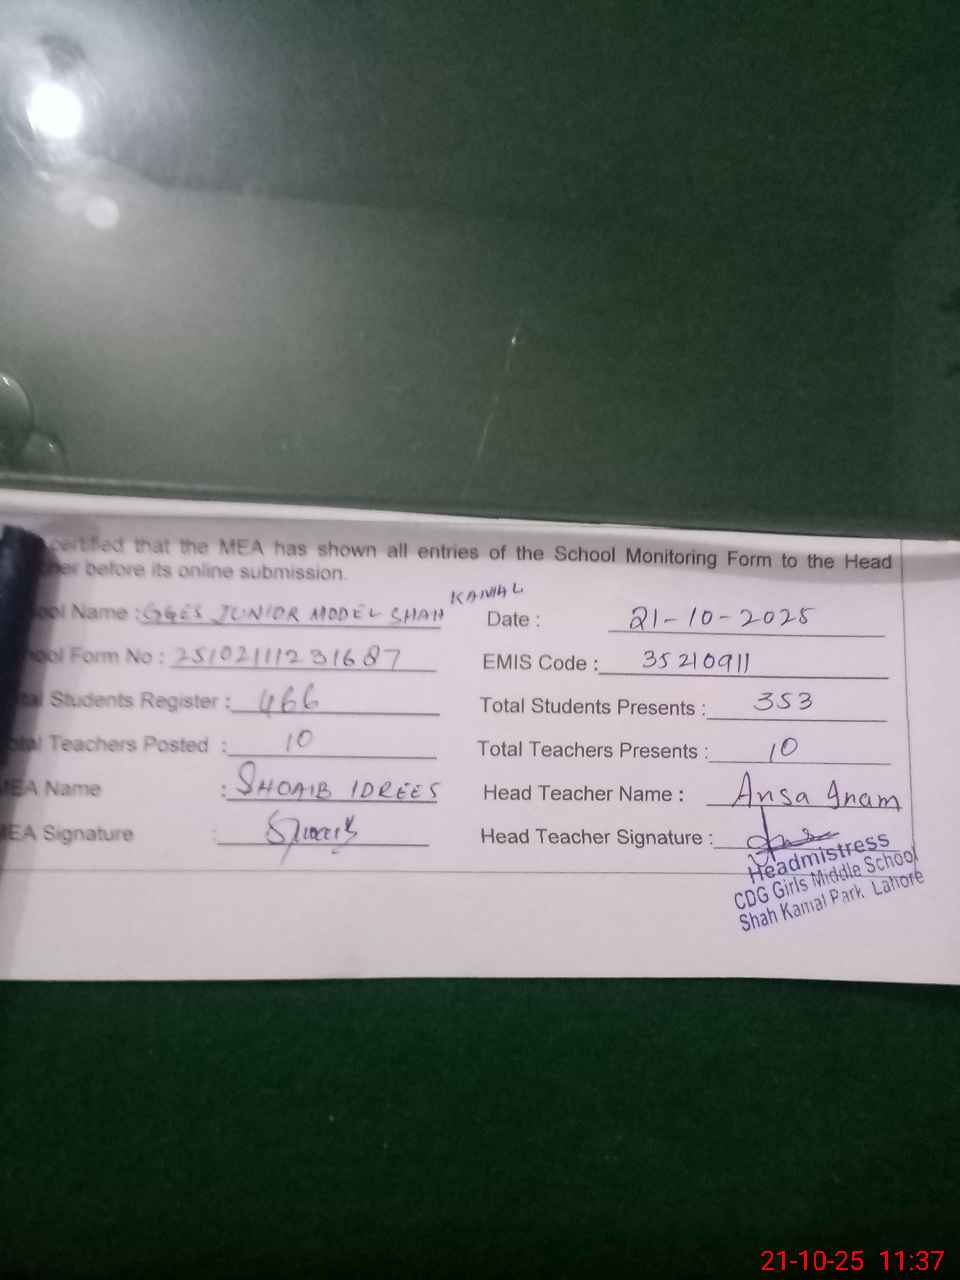 certified that the MEA has shown all entries of the School Monitoring Form to the Head
before its online submission.
School Name : GGES JUNIOR MODEL SHAH KAMAL Date : 21-10-2025
School Form No : 25102111231687 EMIS Code : 35210911
Total Students Register : 466 Total Students Presents : 353
Total Teachers Posted : 10 Total Teachers Presents : 10
MEA Name : SHOAIB IDREES Head Teacher Name : Ansa Inam
MEA Signature : Head Teacher Signature :
Headmistress
CDG Girls Middle School
Shah Kamal Park, Lahore
21-10-25 11:37